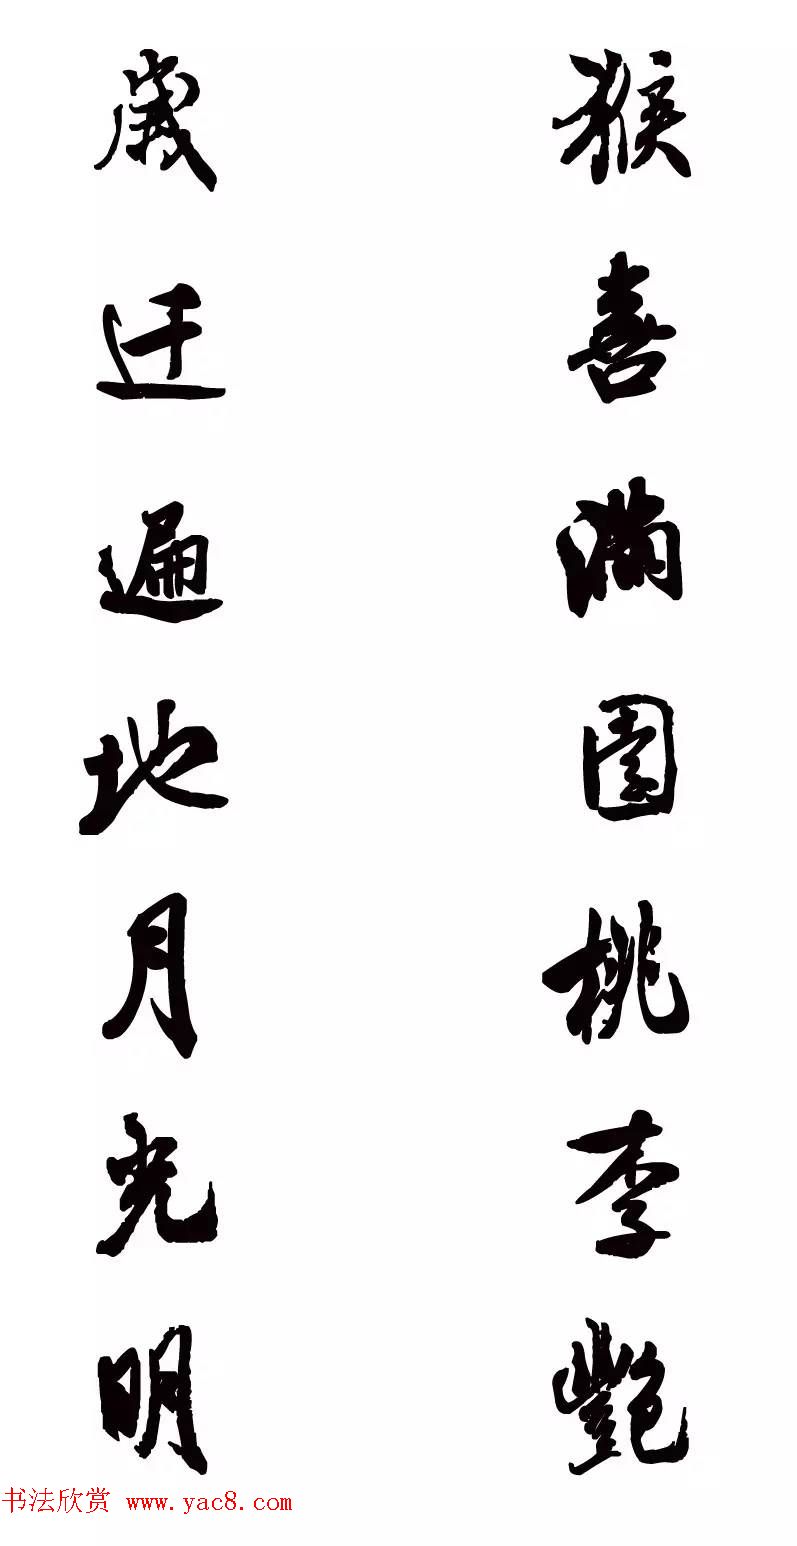 猴喜满園桃李艷
歲迁遍地月光明
书法欣赏 www.yac8.com